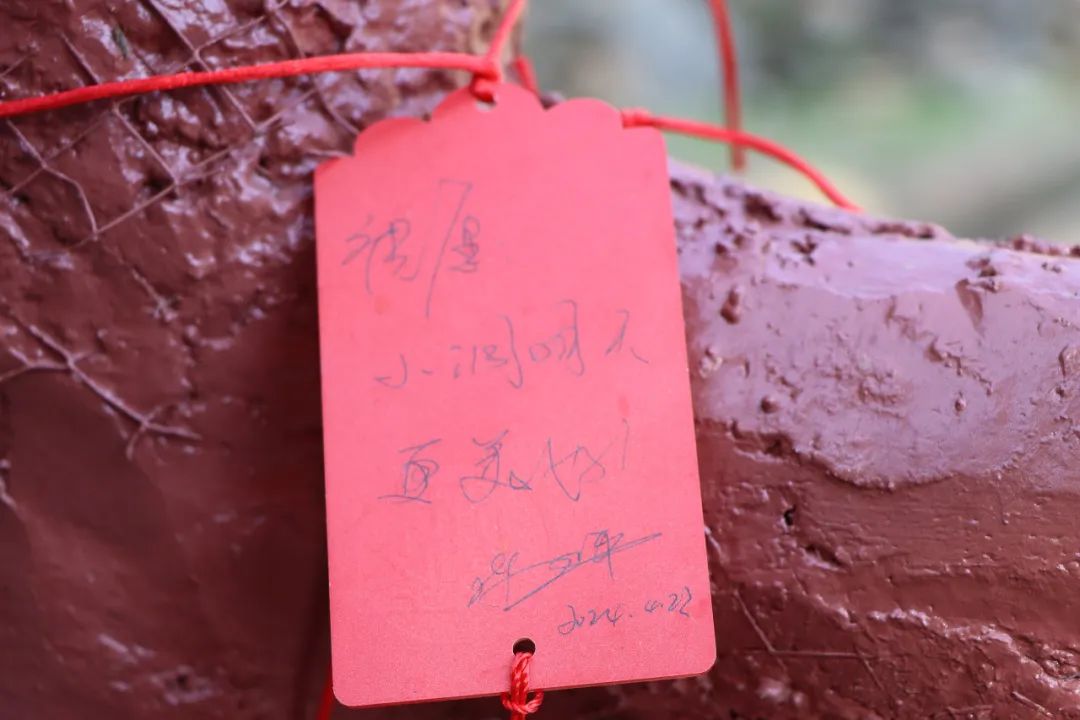 祝愿
小润明天
更美好!
2024.4.22